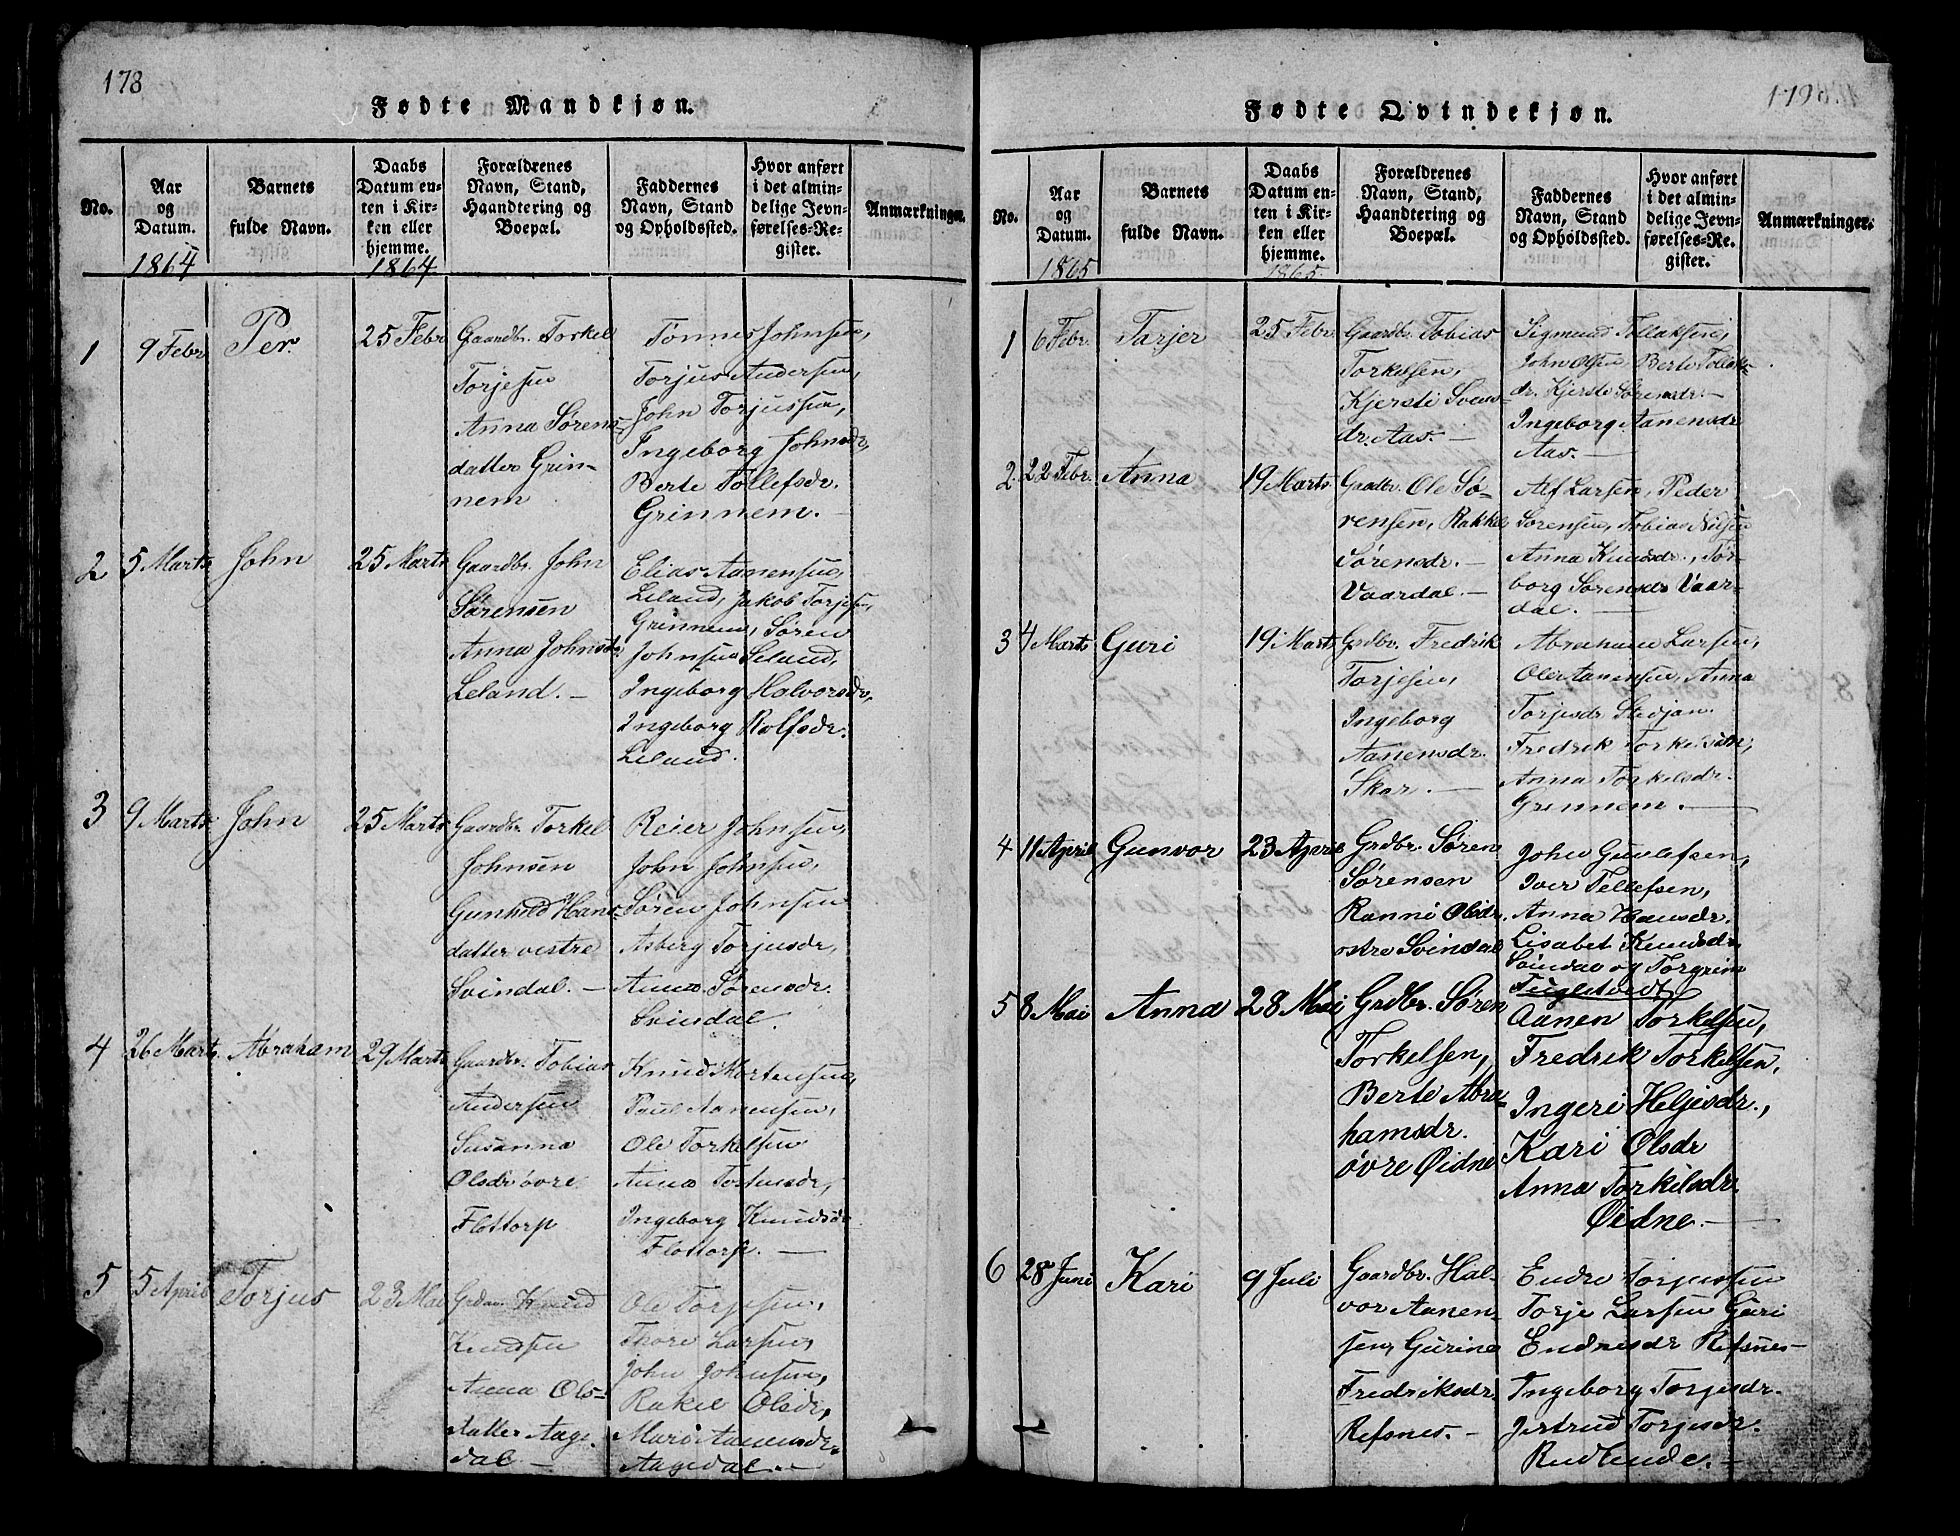 178
Fødte Mandkjøn.
No.
Aar
og
Datum.
Barnets
fulde Navn.
Daabs
Datum en-
ten i Kir-
ken eller
hjemme.
Forældrenes
Navn, Stand,
Haandtering og
Boepæl.
Faddernes
Navn, Stand
og Opholdssted.
Hvor anført
i det almin-
delige Jevn-
førelses-Re-
gister.
Anmærkninger.
1864
1864
1
9 Febr
Per.
25 Febr
Gaardbr. Torkel
Torjesen
Anna Sørens-
datter Grin-
nem
Tønnes Johnsen,
Torjus Andersen,
John Torjussen,
Ingeborg Johnsdr,
Berte Tollefsdr.
Grinnem.
2
5 Marts
John
25 Marts
Gaardbr. John
Sørensen
Anna Johnsdr
Leland.
Elias Aanensen,
Leland, Jakob Torjesen,
Grinnem, Søren
Johnsen Leland,
Ingeborg Halvorsdr,
Ingeborg Rolfsdr.
Leland.
3
9 Marts
John
25 Marts
Gaardbr Torkel
Johnsen
Gunhild Hans-
datter vestre
Svindal.
Reier Johnsen
John Johnsen,
Søren Johnsen
Asberg Torjusdr,
Anna Sørensdr
Svindal.
4
26 Marts
Abraham
29 Marts
Gaardbr. Tobias
Andersen
Susanna
Olsdr øvre
Flottorp
Knud Mortensen,
Paul Aanensen,
Ole Torkelsen
Anna
Ingeborg Knudsdr
Flottorp.
5
5 April
Torjus
23 Mai
Knud
Knudsen
Anna Ols-
datter Aage-
dal
Ole Torjesen,
Thore Larsen,
John Johnsen,
Rakel Olsdr,
Mari Aanensdr
Aagedal.
179
Fødte Qvindekjøn.
No.
Aar
og
Datum.
Barnets
fulde Navn.
Daabs
Datum en-
ten i Kir-
ken eller
hjemme.
Forældrenes
Navn, Stand,
Haandtering og
Boepæl.
Faddernes
Navn, Stand
og Opholdssted.
Hvor anført
i det almin-
delige Jevn-
førelses-Re-
gister.
Anmærkninger.
1865
1865
1
6 Febr.
Tarjer
25 Febr.
Gaardbr. Tobias
Torkelsen,
Kjersti Svens-
dr. Aas.
Sigmund Tollaksen,
John Olsen, Berte Tollaks-
dr. Kjersti Sørensdr.
Ingeborg Aanensdr
Aas.
2
22 Febr.
Anna
19 Marts
Gaardbr. Ole Sø-
rensen, Rakkel
Sørensdr.
Vaardal.
Alf Larsen, Peder
Sørensen, Tobias Nilsen
Anna Knudsdr., Tor-
borg Sørensdr Vaar-
dal.
3
4 Marts
Guri
19 Marts
Grdbr. Fredrik
Torjesen,
Ingeborg
Aanensdr.
Skar.
Abraham Larsen,
Ole Aanensen, Anna
Torjesdr. Stedjan.
Fredrik Torkelsen,
Anna Torkelsdr.
Grennem.
4
11 April
Gunvor
23 April
Grdbr. Søren
Sørensen
Ranni Olsdr.
østre Svindal
John Gunlefsen,
Iver Tellefsen,
Anna Hansdr.
Lisabet Knudsdr.
Svindal og Torgrim
Fuglestvedt
5
8 Mai
Anna
28 Mai
Grdbr. Søren
Torkelsen,
Berte Abra-
hamsdr.
øvre Øidne
Aanen Torkelsen,
Fredrik Torkelsen,
Ingeri Heljesdr.,
Kari Olsdr
Anna Torkelsdr.
Øidne.
6
28 Juni
Kari
9 Juli
Gaardbr. Hal-
vor Aanen-
sen, Gurine
Fredriksdr.
Refsnes.
Endre Torjussen
Torje Larsen Guri
Endresdr Refsnes
Ingeborg Torjesdr.
Jertrud Torjesdr.
Rudlende.